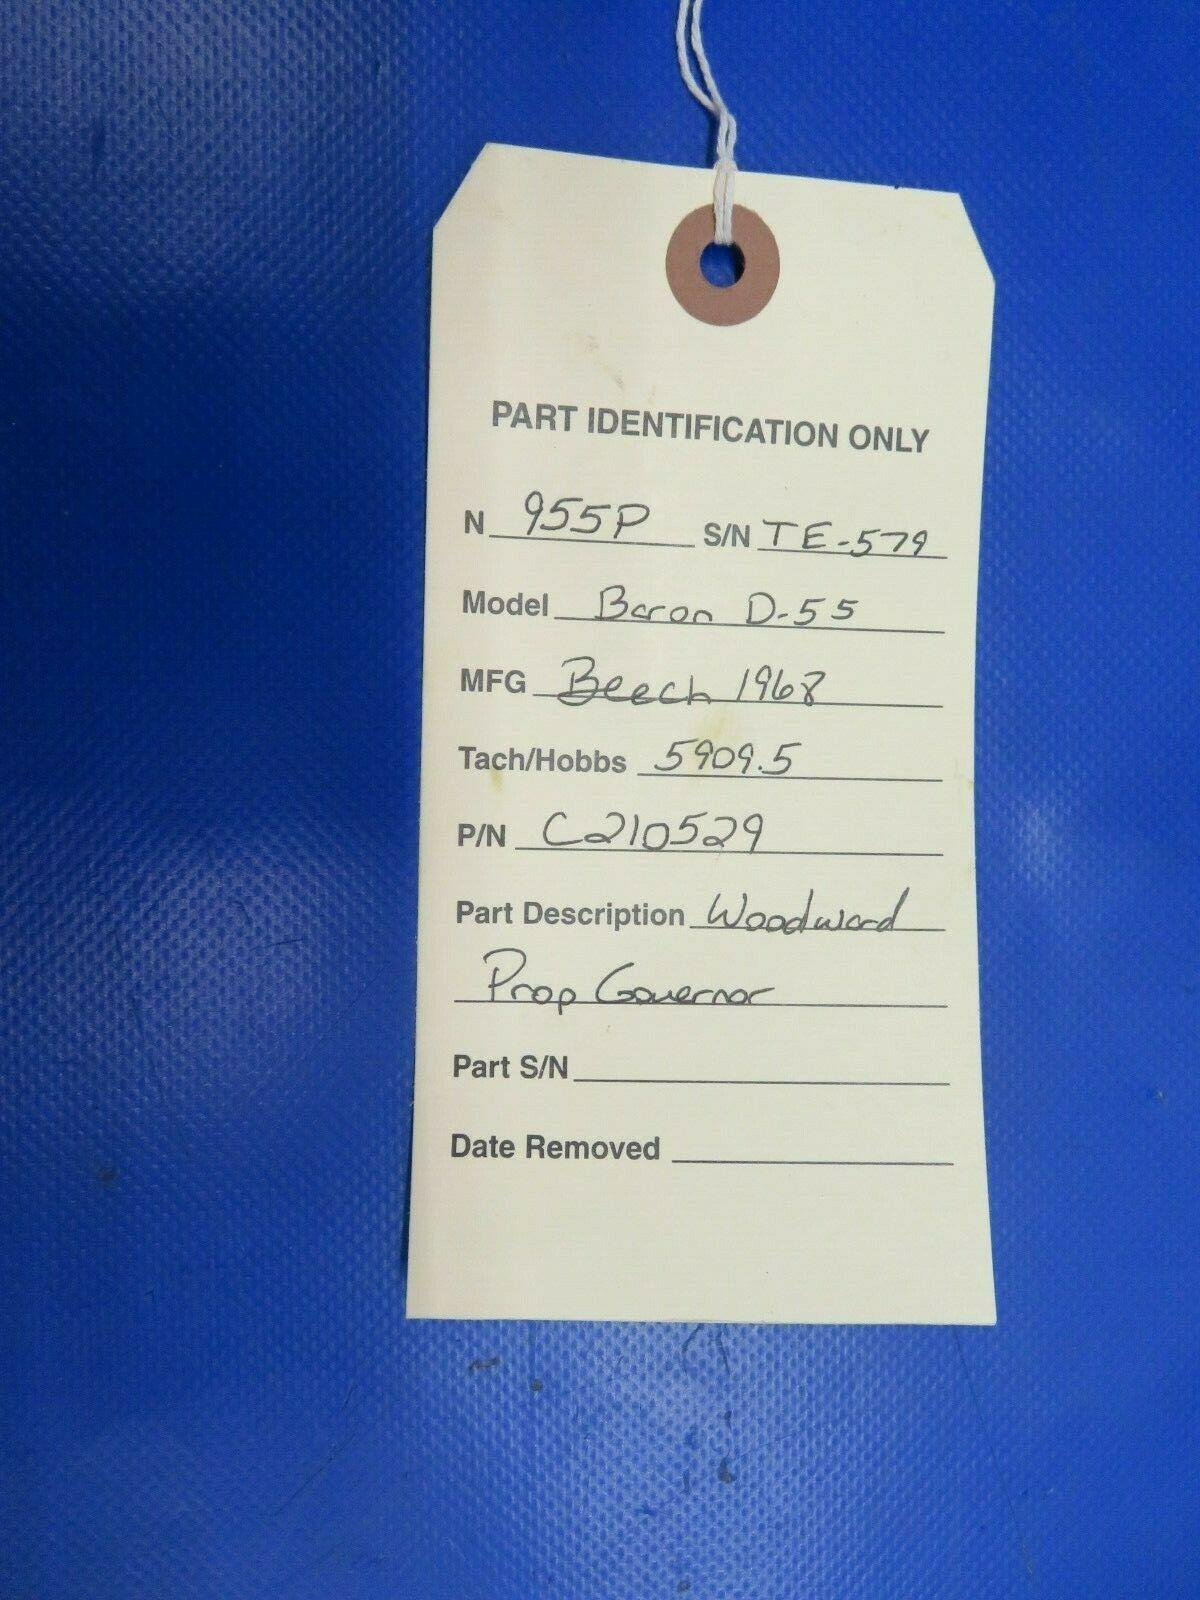 PART IDENTIFICATION ONLY
N 955P S/N TE-579
Model Baron D-55
MFG Beech 1968
Tach/Hobbs 5909.5
P/N C210529
Part Description Woodward
Prop Governor
Part S/N
Date Removed